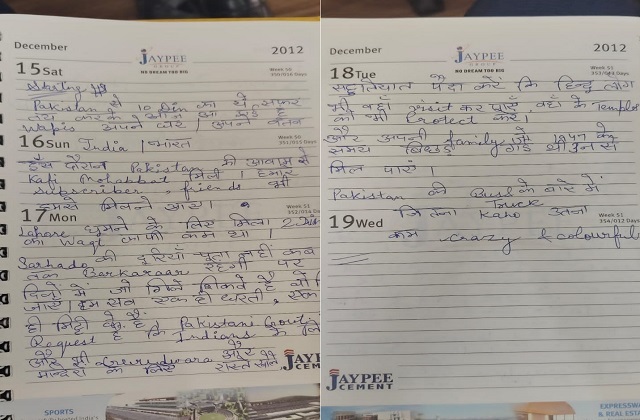 December
2012
JAYPEE
GROUP
NO DREAM TOO BIG
15 Sat
Week 50
350/016 Days
Pakistan से 10 Din का ये सफर
Wapis अपने घर / अपने वतन
16 Sun
India / भारत
Week 50
351/015 Days
इस दौरान Pakistan की आवाम से
Kafi Mohabbat मिली । हमारे
subscriber, friends भी
हमसे मिलने आए ।
17 Mon
Week 51
352/014 Days
Lahore घुमने के लिए मिला 2 Din
का Waqt काफी कम था ।
Sarhado की दूरियां पता नहीं कब
तक Barkaraar रहेंगी पर
दिलों में जो
जाएं । हम सब एक ही धरती, एक
ही मिट्टी के हैं.
Request है कि Pakistani Govt.
Indians के लिए
और भी Gurudwara और
मन्दिरों के लिए रास्ते खोले
JAYPEE
CEMENT
SPORTS
December
2012
JAYPEE
GROUP
NO DREAM TOO BIG
18 Tue
Week 51
353/013 Days
पैदा करें कि हिन्दू लोग
भी वहाँ visit कर पाएं, वहाँ के Temples
को भी Protect करें ।
और अपनी family जो 1947 के
समय बिछड़ गई थी उन से
मिल पाएं ।
Pakistan की Bus के बारे में
Truck
जितना Kaho उतना
19 Wed
Week 51
354/012 Days
कम crazy & colourful
JAYPEE
CEMENT
EXPRESSWAY
& REAL ESTATE